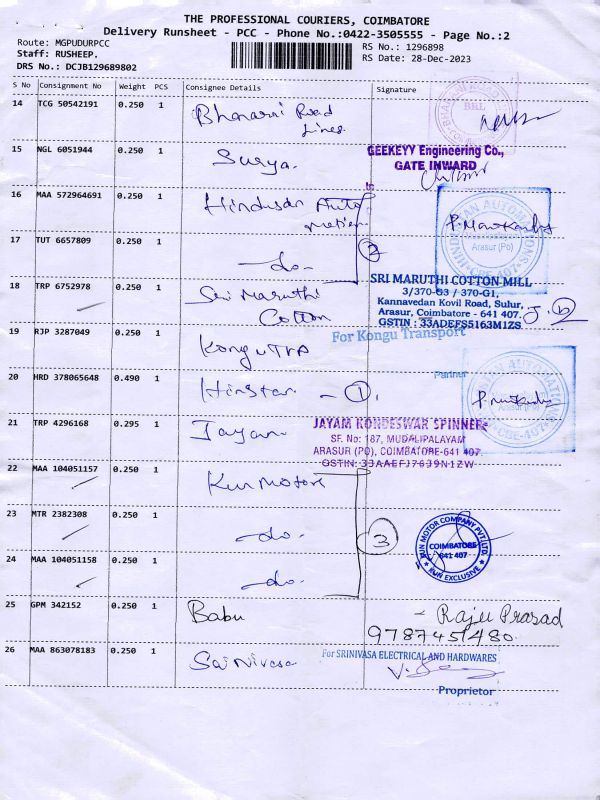 THE PROFESSIONAL COURIERS, COIMBATORE
Delivery Runsheet - PCC - Phone No.:0422-3505555 - Page No.:2
Route: MGPUDURPCC
Staff: RUSHEEP.
DRS No.: DCJB129689802
RS No.: 1296898
RS Date: 28-Dec-2023
S No Consignment No Weight PCS Consignee Details Signature
14 TCG 50542191 0.250 1 Bharani Road
Lines
BRL
15 NGL 6051944 0.250 1 Surya.
GEEKEYY Engineering Co.,
GATE INWARD
16 MAA 572964691 0.250 1 Hindusan Auto
mation
Arasur (Po)
17 TUT 6657809 0.250 1 -do-
2
18 TRP 6752978 0.250 1 Sri Maruthi
Cotton
SRI MARUTHI COTTON MILL
3/370-G3 / 370-G1,
Kannavedan Kovil Road, Sulur,
Arasur, Coimbatore - 641 407.
GSTIN : 33ADEFS5163M1ZS
19 RJP 3287049 0.250 1 Kongu TRP
For Kongu Transport
Partner
20 HRD 378065648 0.490 1 Hinstar - 1
Arasur (Po)
21 TRP 4296168 0.295 1 Jayam
JAYAM KONDESWAR SPINNERS
SF. No: 187, MUDALIPALAYAM
ARASUR (PO), COIMBATORE-641 407.
GSTIN: 33AAEFJ7639N1ZW
22 MAA 104051157 0.250 1 Kun Motors
23 MTR 2382308 0.250 1 -do-
3
KUN MOTOR COMPANY PVT.LTD.
COIMBATORE
641 407
KUN EXCLUSIVE
24 MAA 104051158 0.250 1 -do-
25 GPM 342152 0.250 1 Babu
- Rajee Prasad
978745480
26 MAA 863078183 0.250 1 Sai Nivasa
For SRINIVASA ELECTRICAL AND HARDWARES
Proprietor